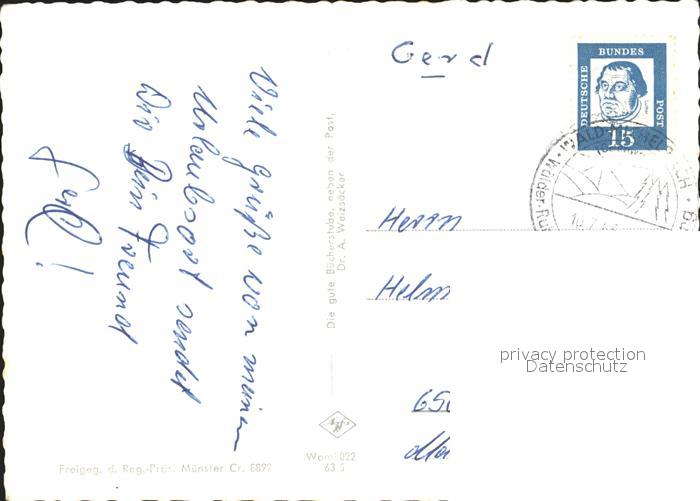 Gerd
DEUTSCHE BUNDES POST
15
WALD-MICHELBACH
10.7.6
Viele Grüße von meinem
Urlaubsort sendet
Dir Dein Freund
Gerd!
Die gute Bücherstube, neben der Post,
Dr. A. Weizsäcker
Herrn
Helm
privacy protection
Datenschutz
65
Ma
Womi 022
63 S
Freigeg. d. Reg.-Präs. Münster Cr. 8899